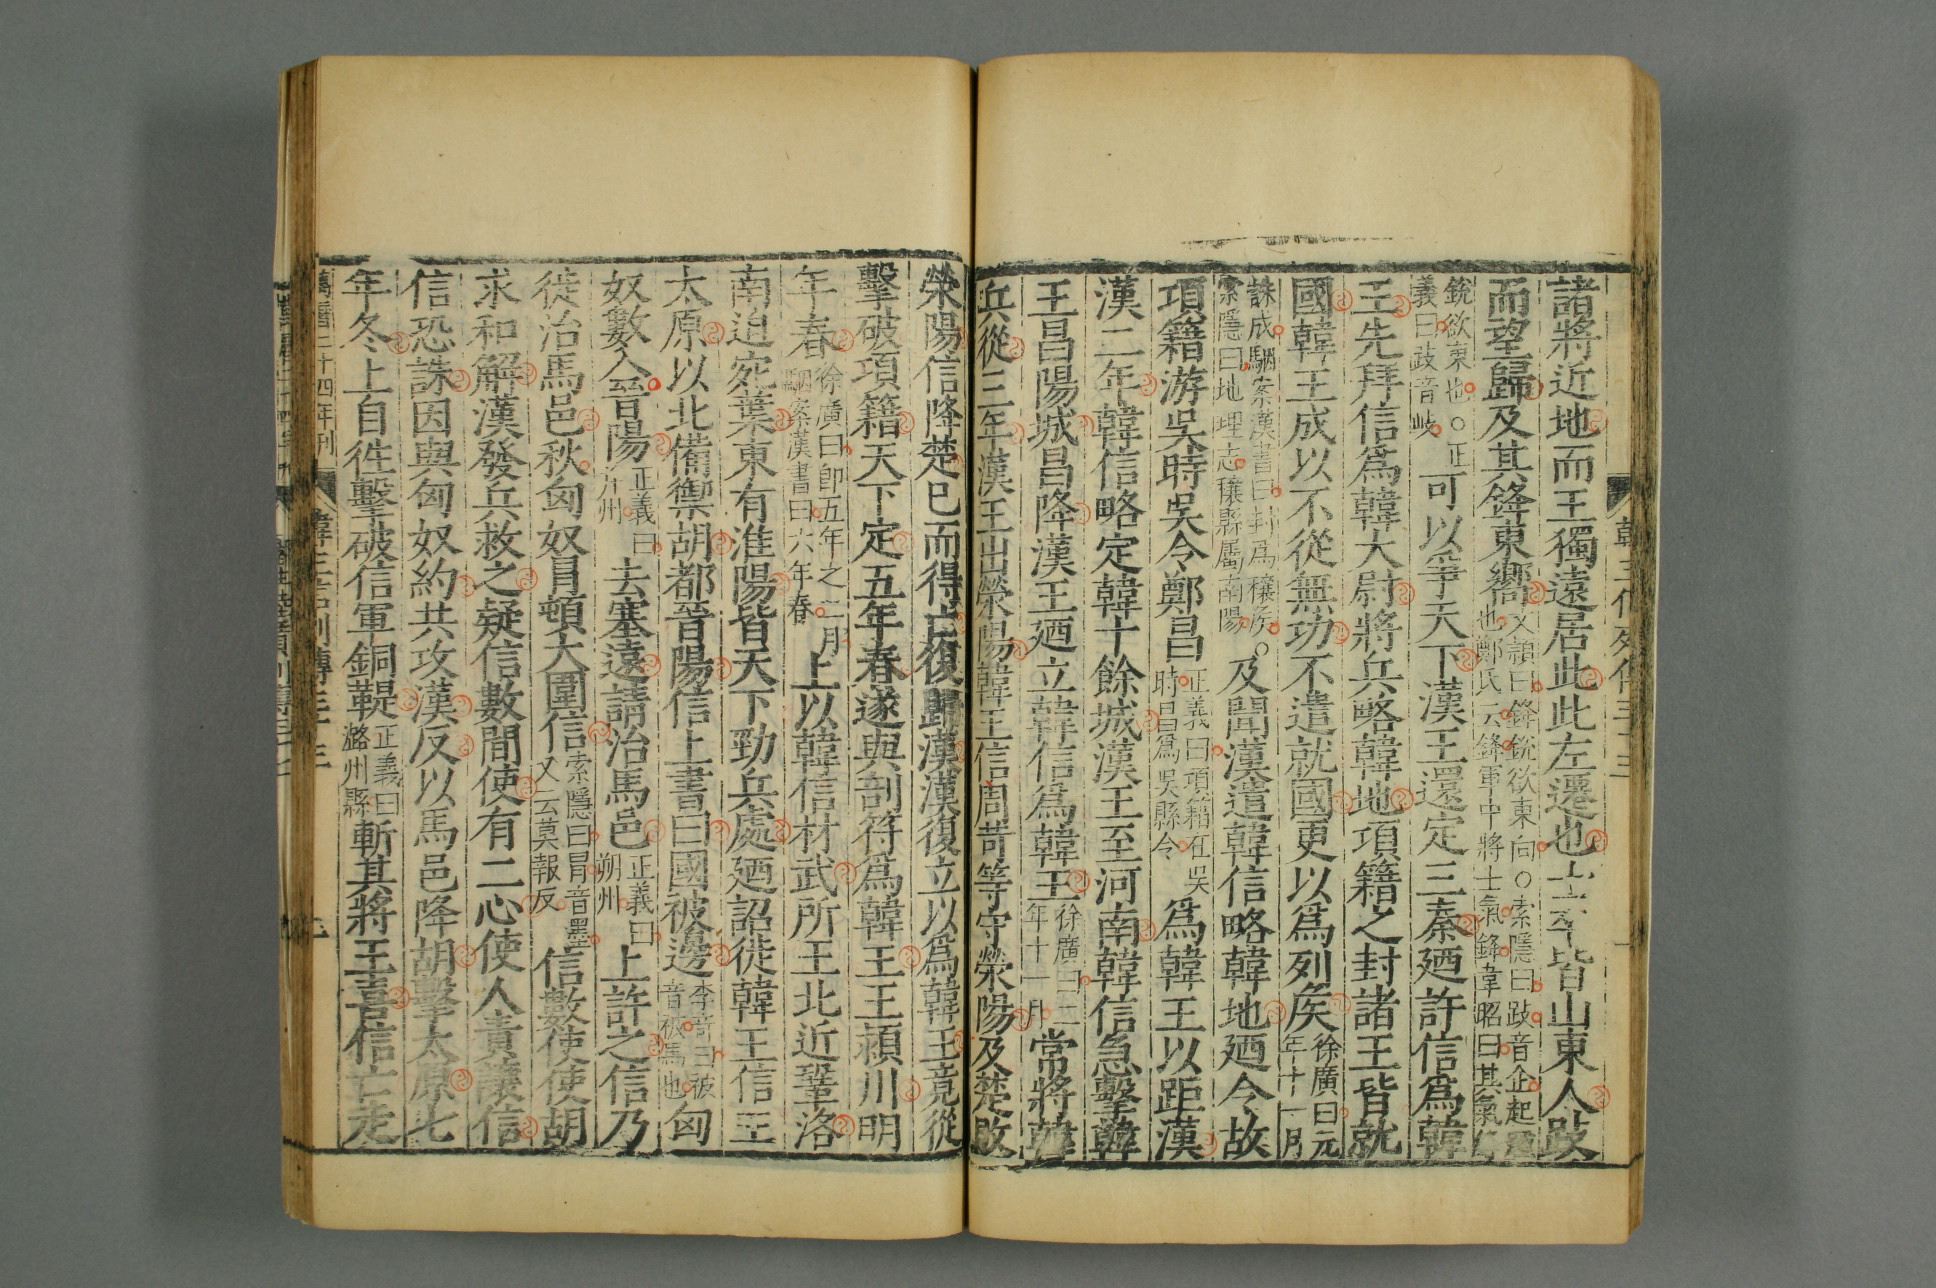 諸將近地而王獨遠居此此左遷也士卒皆山東人跂
而望歸及其鋒東嚮文穎曰鋒銳欲東向○索隱曰跂音企起
也鄭氏云鋒軍中將士氣鋒韋昭曰其氣
銳欲東也○正
義曰跂音岐可以爭天下漢王還定三秦廼許信爲韓
王先拜信爲韓大尉將兵略韓地項籍之封諸王皆就
國韓王成以不從無功不遣就國更以爲列矦徐廣曰元
年十一月
誅成駰案漢書曰封爲穰矦○
索隱曰地理志穰縣屬南陽及聞漢遣韓信略韓地廼令故
項籍游吳時吳令鄭昌正義曰項籍在吳
時昌爲吳縣令爲韓王以距漢
漢二年韓信略定韓十餘城漢王至河南韓信急擊韓
王昌陽城昌降漢王廼立韓信爲韓王徐廣曰二
年十一月常將韓
兵從三年漢王出滎陽韓王信周苛等守滎陽及楚敗
滎陽信降楚已而得亡復歸漢漢復立以爲韓王竟從
擊破項籍天下定五年春遂與剖符爲韓王王潁川明
年春徐廣曰卽五年之二月
駰案漢書曰六年春上以韓信材武所王北近鞏洛
南迫宛葉東有淮陽皆天下勁兵處廼詔徙韓王信王
太原以北備禦胡都晉陽信上書曰國被邊李竒曰被
音被馬也匈
奴數入晉陽正義曰
幷州去塞遠請治馬邑正義曰
朔州上許之信乃
徙治馬邑秋匈奴冒頓大圍信索隱曰冒音墨
又云莫報反信數使使胡
求和解漢發兵救之疑信數間使有二心使人責讓信
信恐誅因與匈奴約共攻漢反以馬邑降胡擊太原七
年冬上自徃擊破信軍銅鞮正義曰
潞州縣斬其將王喜信亡走
萬曆二十四年刊
韓王信列傳三十三